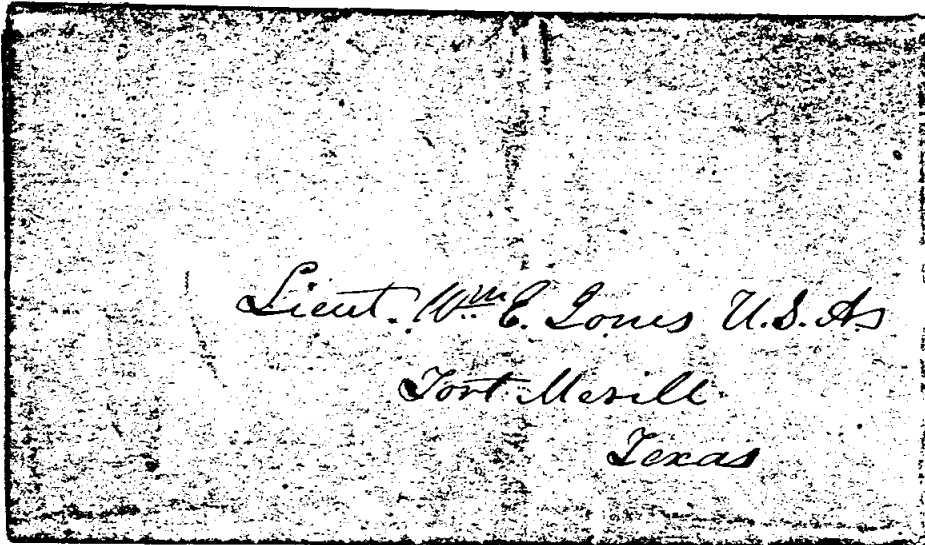 Lieut. Wm E. Jones U.S.A
Fort Merill
Texas